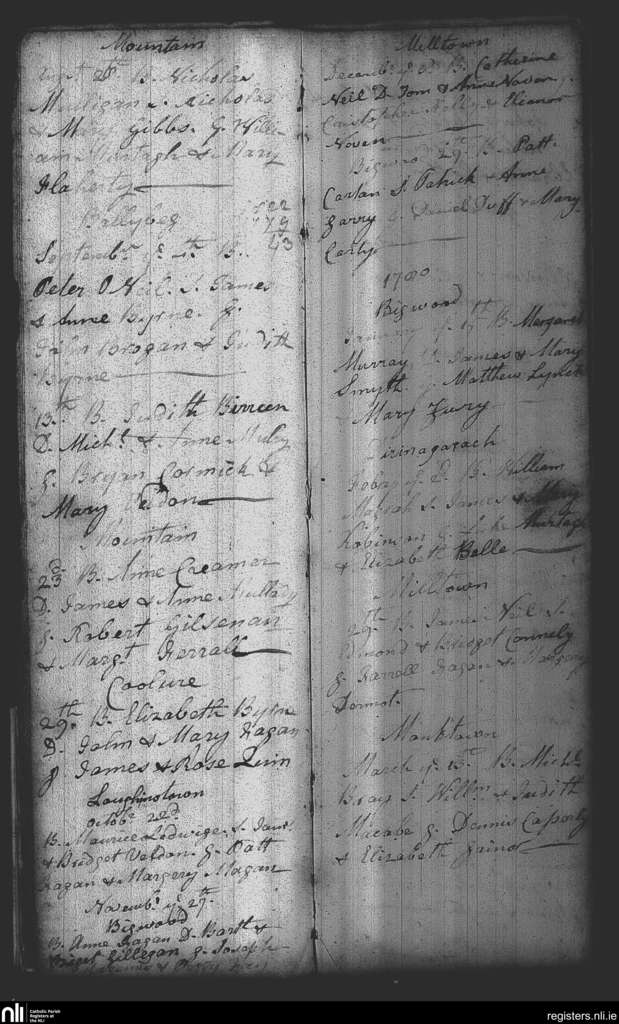 Mountain
28th B. Nicholas
Mulligan Nicholas
& Mary Gibbs. G. Willi
am Murtagh & Mary
Flaherty
Ballybeg
Septembr ye B.
Peter O Neil. S. James
& Anne Byrne. G.
Jams Brogan & Judith
Byrne
B. Judith Birreen
D. Michl. & Anne
G. Bryan Cormick &
Mary Veldon
Mountain
23d B. Anne Creamer
D. James & Anne Mullady
G. Robert Gilsenan
& Margt. Ferrall
Coolure
29th. B. Elizabeth Byrne
D. & Mary Fagan
G James & Rose Quin
Loughinstown
Octobr. 22d.
B. Maurice Ledwige. S. Jams.
& Bridget Veldon. G. Patt
Fagan & Margery Magan
Novembr. ye 27th.
Bigwood
B. Anne Fagan D. Bartt. &
Briget Gillegan G. Joseph
Milltown
Decembr ye 8th B. Catherine
Neil D. Tom & Anne Noven g.
Cristopher & Eleanor
Noven
Bigwood 29th. B. Patt.
Carlan S. Patrick & Anne
Garry G. Daniel Duff & Mary
Carty
1780
Bigwood
January ye B. Margaret
Murray D. James & Mary
Smyth G. Matthew Lynch
Mary
B. William
S. James & Mary
Robinson G. Luke Murtagh
& Elizabeth Balle
Milltown
29th B. James Neil S.
Edmond & Bridget Connely
G. Farrell Fagan & Margery
Dermot.
Monktown
March ye B. Michl.
Bray S. Willm. & Judith
Macabe G. Dennis Casporty
& Elizabeth
nli
Catholic Parish
Registers at
the NLI
registers.nli.ie